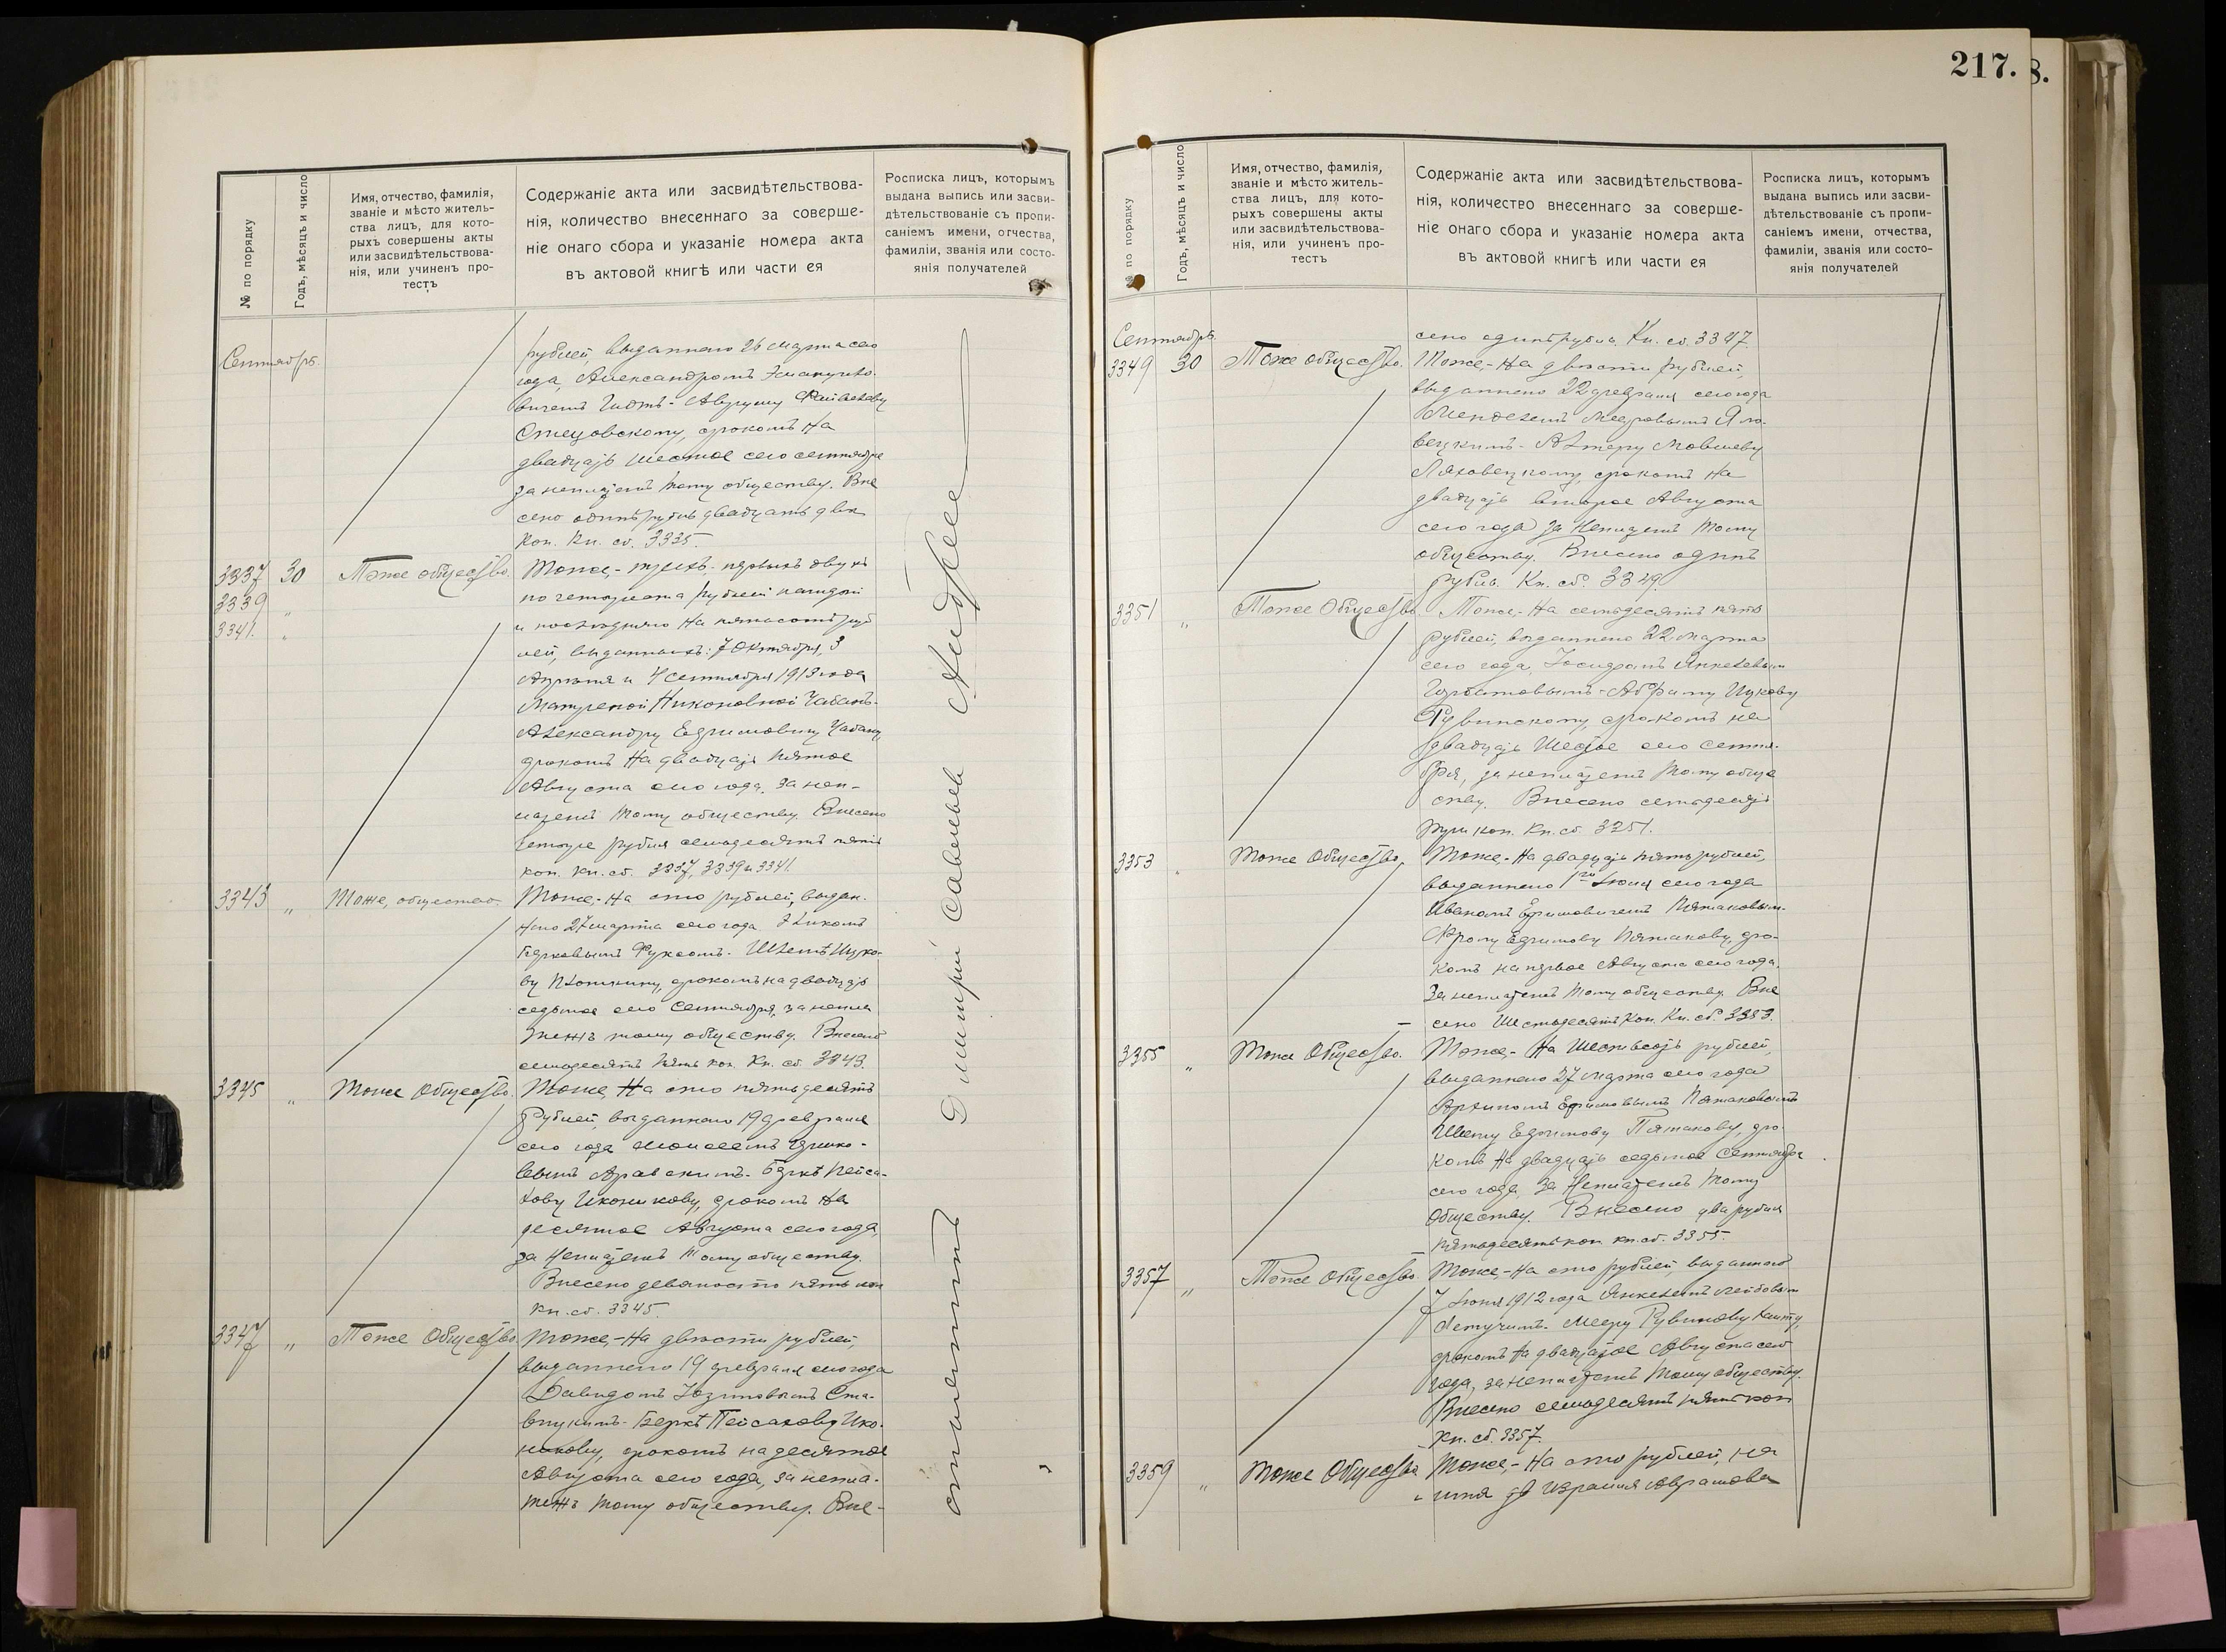 217.
8.
№ по порядку
Годъ, мѣсяцъ и число
Имя, отчество, фамилія,
званіе и мѣсто житель-
ства лицъ, для кото-
рыхъ совершены акты
или засвидѣтельствова-
нія, или учиненъ про-
тестъ
Содержаніе акта или засвидѣтельствова-
нія, количество внесеннаго за соверше-
ніе онаго сбора и указаніе номера акта
въ актовой книгѣ или части ея
Росписка лицъ, которымъ
выдана выпись или засви-
дѣтельствованіе съ пропи-
саніемъ имени, отчества,
фамиліи, званія или состо-
янія получателей
Сентябрь.
рублей, выданнаго 26 марта сего
года, Александромъ
Августу
срокомъ на
двадцать шестое сего сентября
за неплатежъ тому обществу. Вне
сено одинъ рубль двадцать две
коп. Кн. сб. 3335.
3337 30 Тоже общество. Тоже, - трехъ - первыхъ двухъ
3339 " по четыреста рублей каждый
3341. " и послѣдняго на пятьсотъ руб
лей, выданныхъ: 7 Октября, 3
Апрѣля и 4 сентября 1913 года
Матреной Никоновной Чабанъ-
Александру Ефимовичу Чабану,
срокомъ на двадцать пятое
Августа сего года, за неп-
латежъ тому обществу. Внесено
четыре рубля семьдесятъ пять
коп. Кн. сб. 3337, 3339 и 3341.
3343 " Тоже, общество. Тоже, - На сто рублей, выдан.
наго 27 марта сего года
Берковымъ Фуксомъ -
срокомъ на двадцать
седьмое сего Сентября, за непла
тежъ тому обществу. Внесено
семьдесятъ пять коп. Кн. сб. 3343.
3345 " Тоже Общество. Тоже, На сто пятьдесятъ
рублей, выданнаго 19 февраля
сего года Моисеемъ
Беркѣ Пейса-
хову Иконикову, срокомъ на
десятое Августа сего года,
за неплатежъ тому обществу.
Внесено девяносто пять коп
Кн. сб. 3345
3347 " Тоже Общество Тоже, - На двѣсти рублей,
выданнаго 19 февраля сего года
Давидомъ
Беркѣ Пейсахову Ико-
никову, срокомъ на десятое
Августа сего года, за непла-
тежъ тому обществу. Вне-
Дмитрій Савельевъ Андреев
№ по порядку
Годъ, мѣсяцъ и число
Имя, отчество, фамилія,
званіе и мѣсто житель-
ства лицъ, для кото-
рыхъ совершены акты
или засвидѣтельствова-
нія, или учиненъ про-
тестъ
Содержаніе акта или засвидѣтельствова-
нія, количество внесеннаго за соверше-
ніе онаго сбора и указаніе номера акта
въ актовой книгѣ или части ея
Росписка лицъ, которымъ
выдана выпись или засви-
дѣтельствованіе съ пропи-
саніемъ имени, отчества,
фамиліи, званія или состо-
янія получателей
Сентябрь.
сено одинъ рубль. Кн. сб. 3347
3349 30 Тоже общество. Тоже, - На двѣсти рублей,
выданнаго 22 февраля сего года
Менделемъ
Мовшеву
Ляховецкому, срокомъ на
двадцать второе Августа
сего года за неплатежъ тому
обществу. Внесено одинъ
рубль. Кн. сб. 3349.
3351 " Тоже Общество. Тоже, - На семьдесятъ пять
рублей, выданнаго 22 марта
сего года, Янкелевымъ
Горбатовымъ - Абраму Ицкову
Рувинскому, срокомъ на
двадцать шестое сего сентя-
бря, за неплатежъ тому обще
ству. Внесено семьдесятъ
три коп. Кн. сб. 3351.
3353 " Тоже Общество, Тоже, - На двадцать пять рублей,
выданнаго 1го Іюня сего года
Иваномъ Ефимовичемъ Пятаковым-
Ефимову Пятакову, сро-
комъ на первое Августа сего года.
За неплатежъ тому обществу. Вне
сено шестьдесятъ коп. Кн. сб. 3353.
3355 " Тоже Общество. Тоже, - На шестьсотъ рублей,
выданнаго 27 марта сего года
Архипомъ Ефимовымъ Пятаковымъ
Ефимову Пятакову, сро-
комъ на двадцать седьмое Сентября
сего года, за неплатежъ тому
Обществу. Внесено два рубля
пятьдесятъ коп. кн. сб. 3355.
3357 " Тоже Общество. Тоже, - На сто рублей, выданнаго
7 Іюня 1912 года Янкелемъ Лейбовым
Рувинову
срокомъ на двадцатое Августа сего
года, за неплатежъ тому обществу.
Внесено семьдесятъ пять коп
Кн. сб. 3357.
3359 " Тоже Общество Тоже, - На сто рублей, на
имя Израиля Абрамова